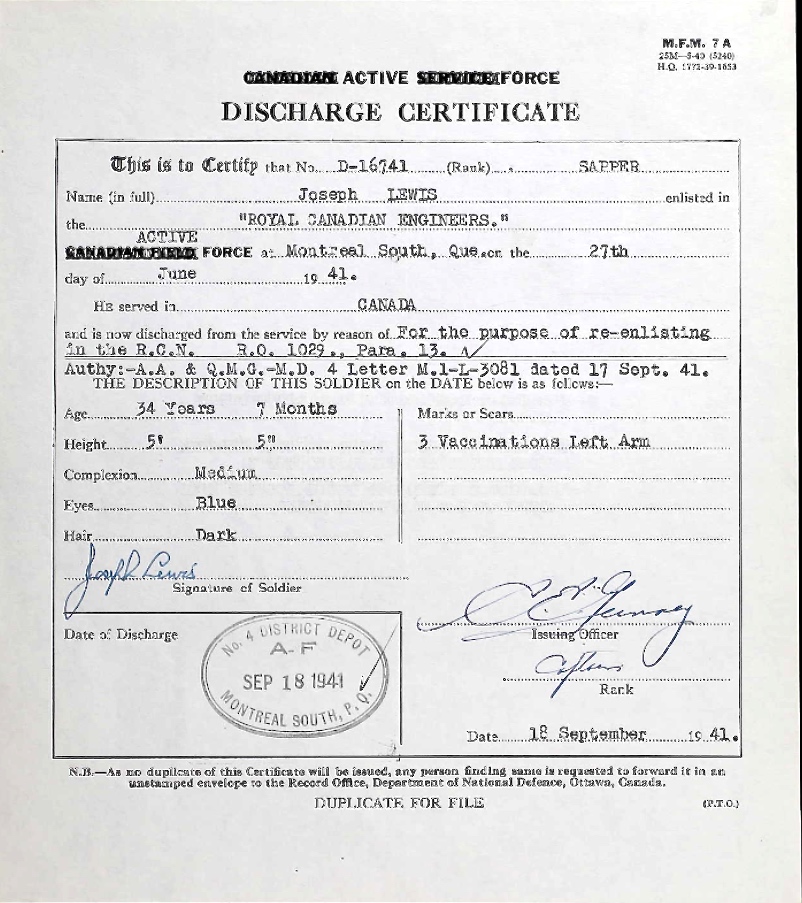 M.F.M. 7 A
25M—5-40 (5240)
H.Q. 1772-39-1653
CANADIAN ACTIVE SERVICE FORCE
DISCHARGE CERTIFICATE
This is to Certify that No. D-16741 (Rank) SAPPER
Name (in full) Joseph LEWIS enlisted in
the "ROYAL CANADIAN ENGINEERS."
ACTIVE
CANADIAN FIELD FORCE at Montreal South, Que. on the 27th
day of June 19 41.
HE served in CANADA
and is now discharged from the service by reason of For the purpose of re-enlisting
in the R.C.N. R.O. 1029., Para. 13.
Authy:-A.A. & Q.M.G.-M.D. 4 Letter M.1-L-3081 dated 17 Sept. 41.
THE DESCRIPTION OF THIS SOLDIER on the DATE below is as follows:—
Age 34 Years 7 Months
Marks or Scars
Height 5' 5"
3 Vaccinations Left Arm
Complexion Medium
Eyes Blue
Hair Dark
Joseph Lewis
Signature of Soldier
Issuing Officer
Date of Discharge
No. 4 DISTRICT DEPOT
A-F
SEP 18 1941
MONTREAL SOUTH, P.Q.
Captain
Rank
Date 18 September 19 41.
N.B.—As no duplicate of this Certificate will be issued, any person finding same is requested to forward it in an
unstamped envelope to the Record Office, Department of National Defence, Ottawa, Canada.
DUPLICATE FOR FILE
(P.T.O.)